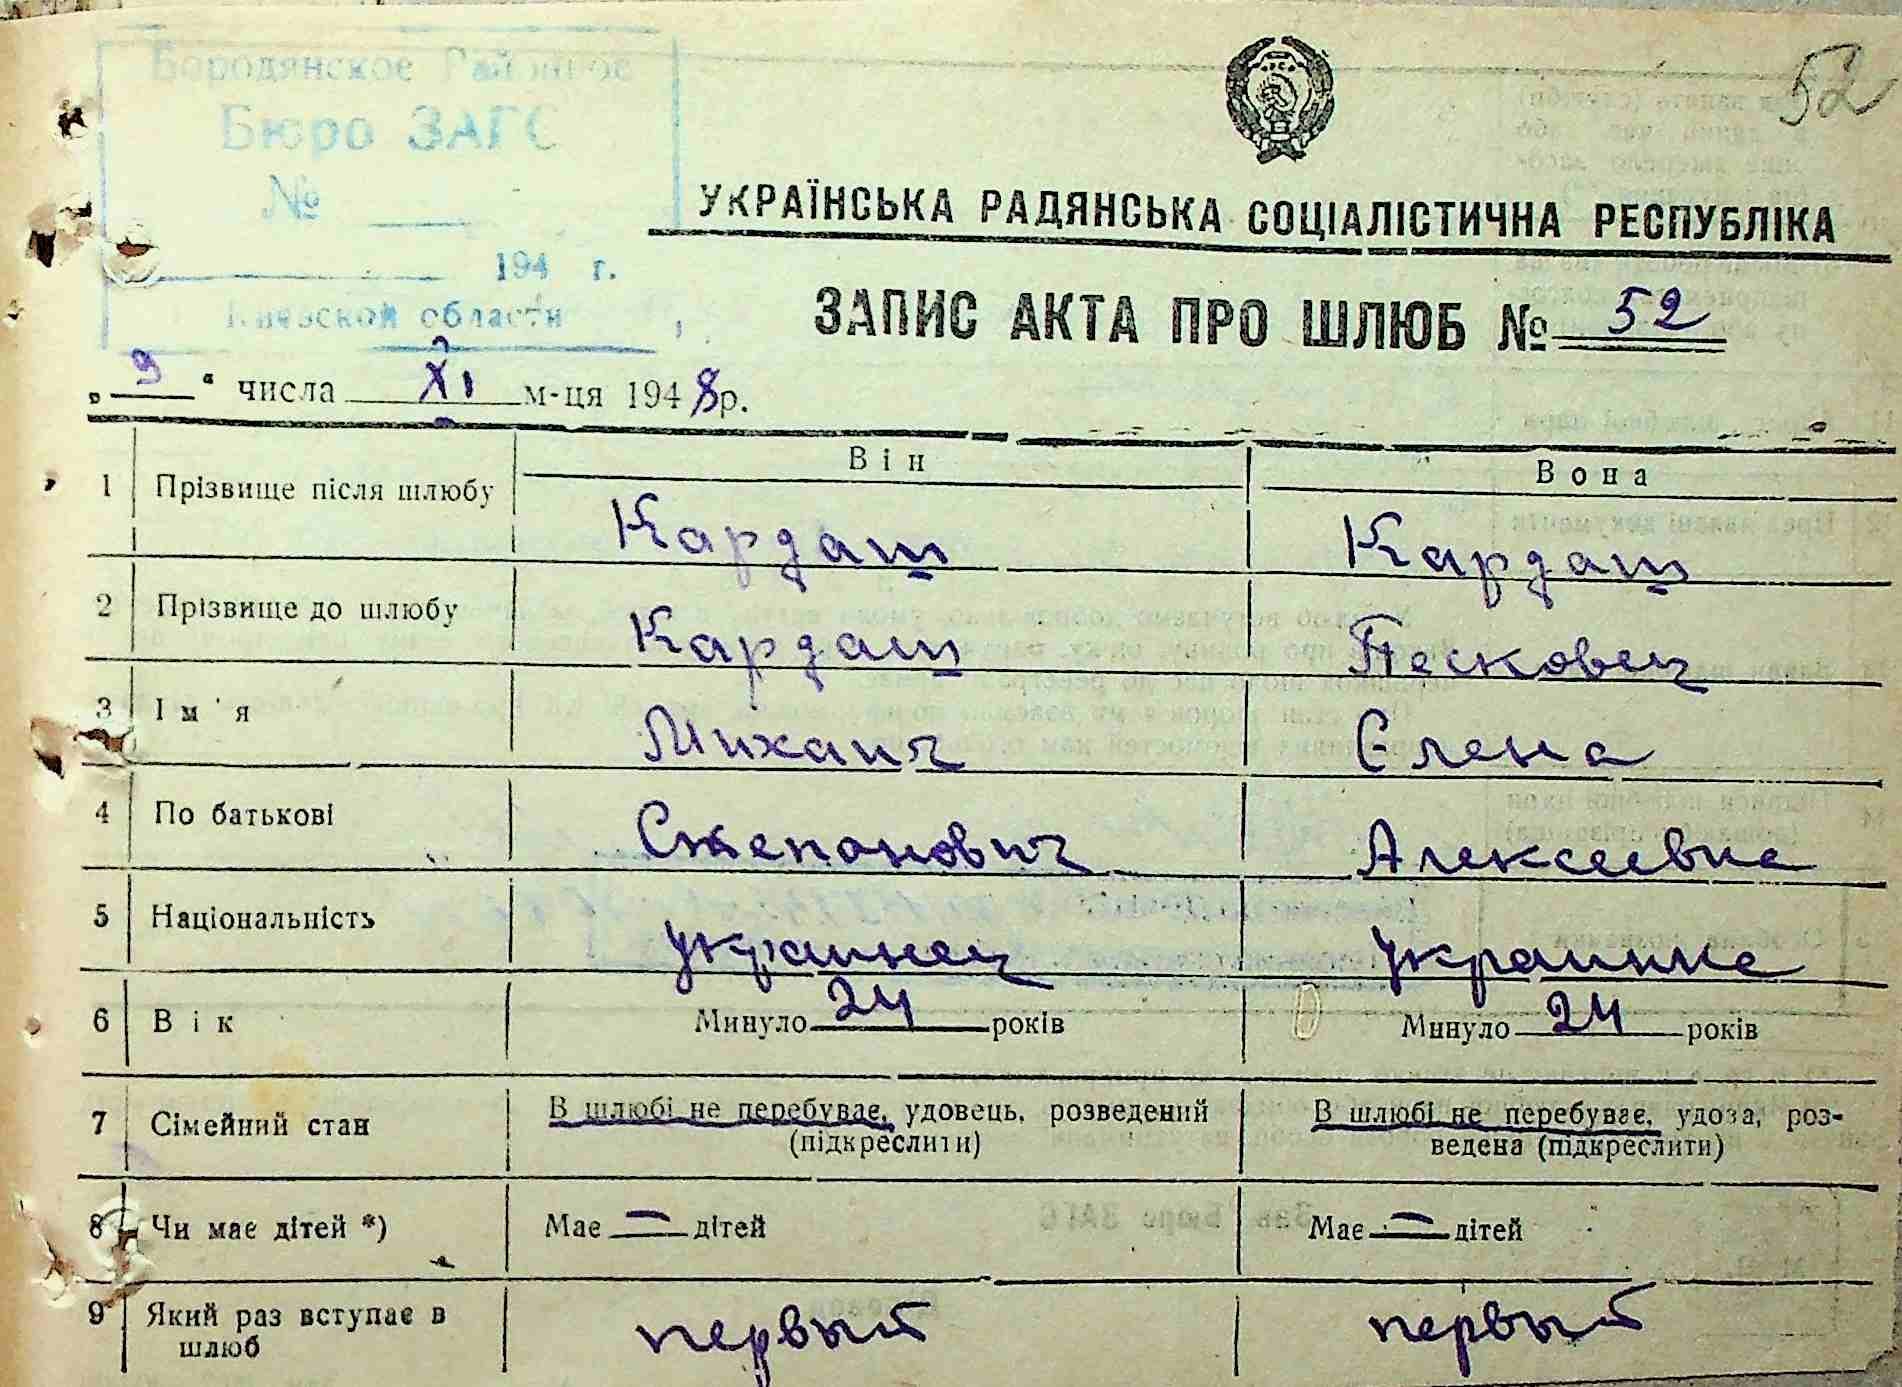 Бородянское Районное
Бюро ЗАГС
№
194 г.
Киевской области
52
УКРАЇНСЬКА РАДЯНСЬКА СОЦІАЛІСТИЧНА РЕСПУБЛІКА
ЗАПИС АКТА ПРО ШЛЮБ № 52
„ 9 “ числа XI м-ця 1948 р.
Він Вона
1 Прізвище після шлюбу Кардаш Кардаш
2 Прізвище до шлюбу Кардаш Песковец
3 Ім'я Михаил Єлена
4 По батькові Степанович Алексеевна
5 Національність украинец украинка
6 Вік Минуло 24 років Минуло 24 років
7 Сімейний стан В шлюбі не перебуває, удовець, розведений (підкреслити) В шлюбі не перебуває, удова, роз-
ведена (підкреслити)
8 Чи має дітей *) Має — дітей Має — дітей
9 Який раз вступає в шлюб первый первый